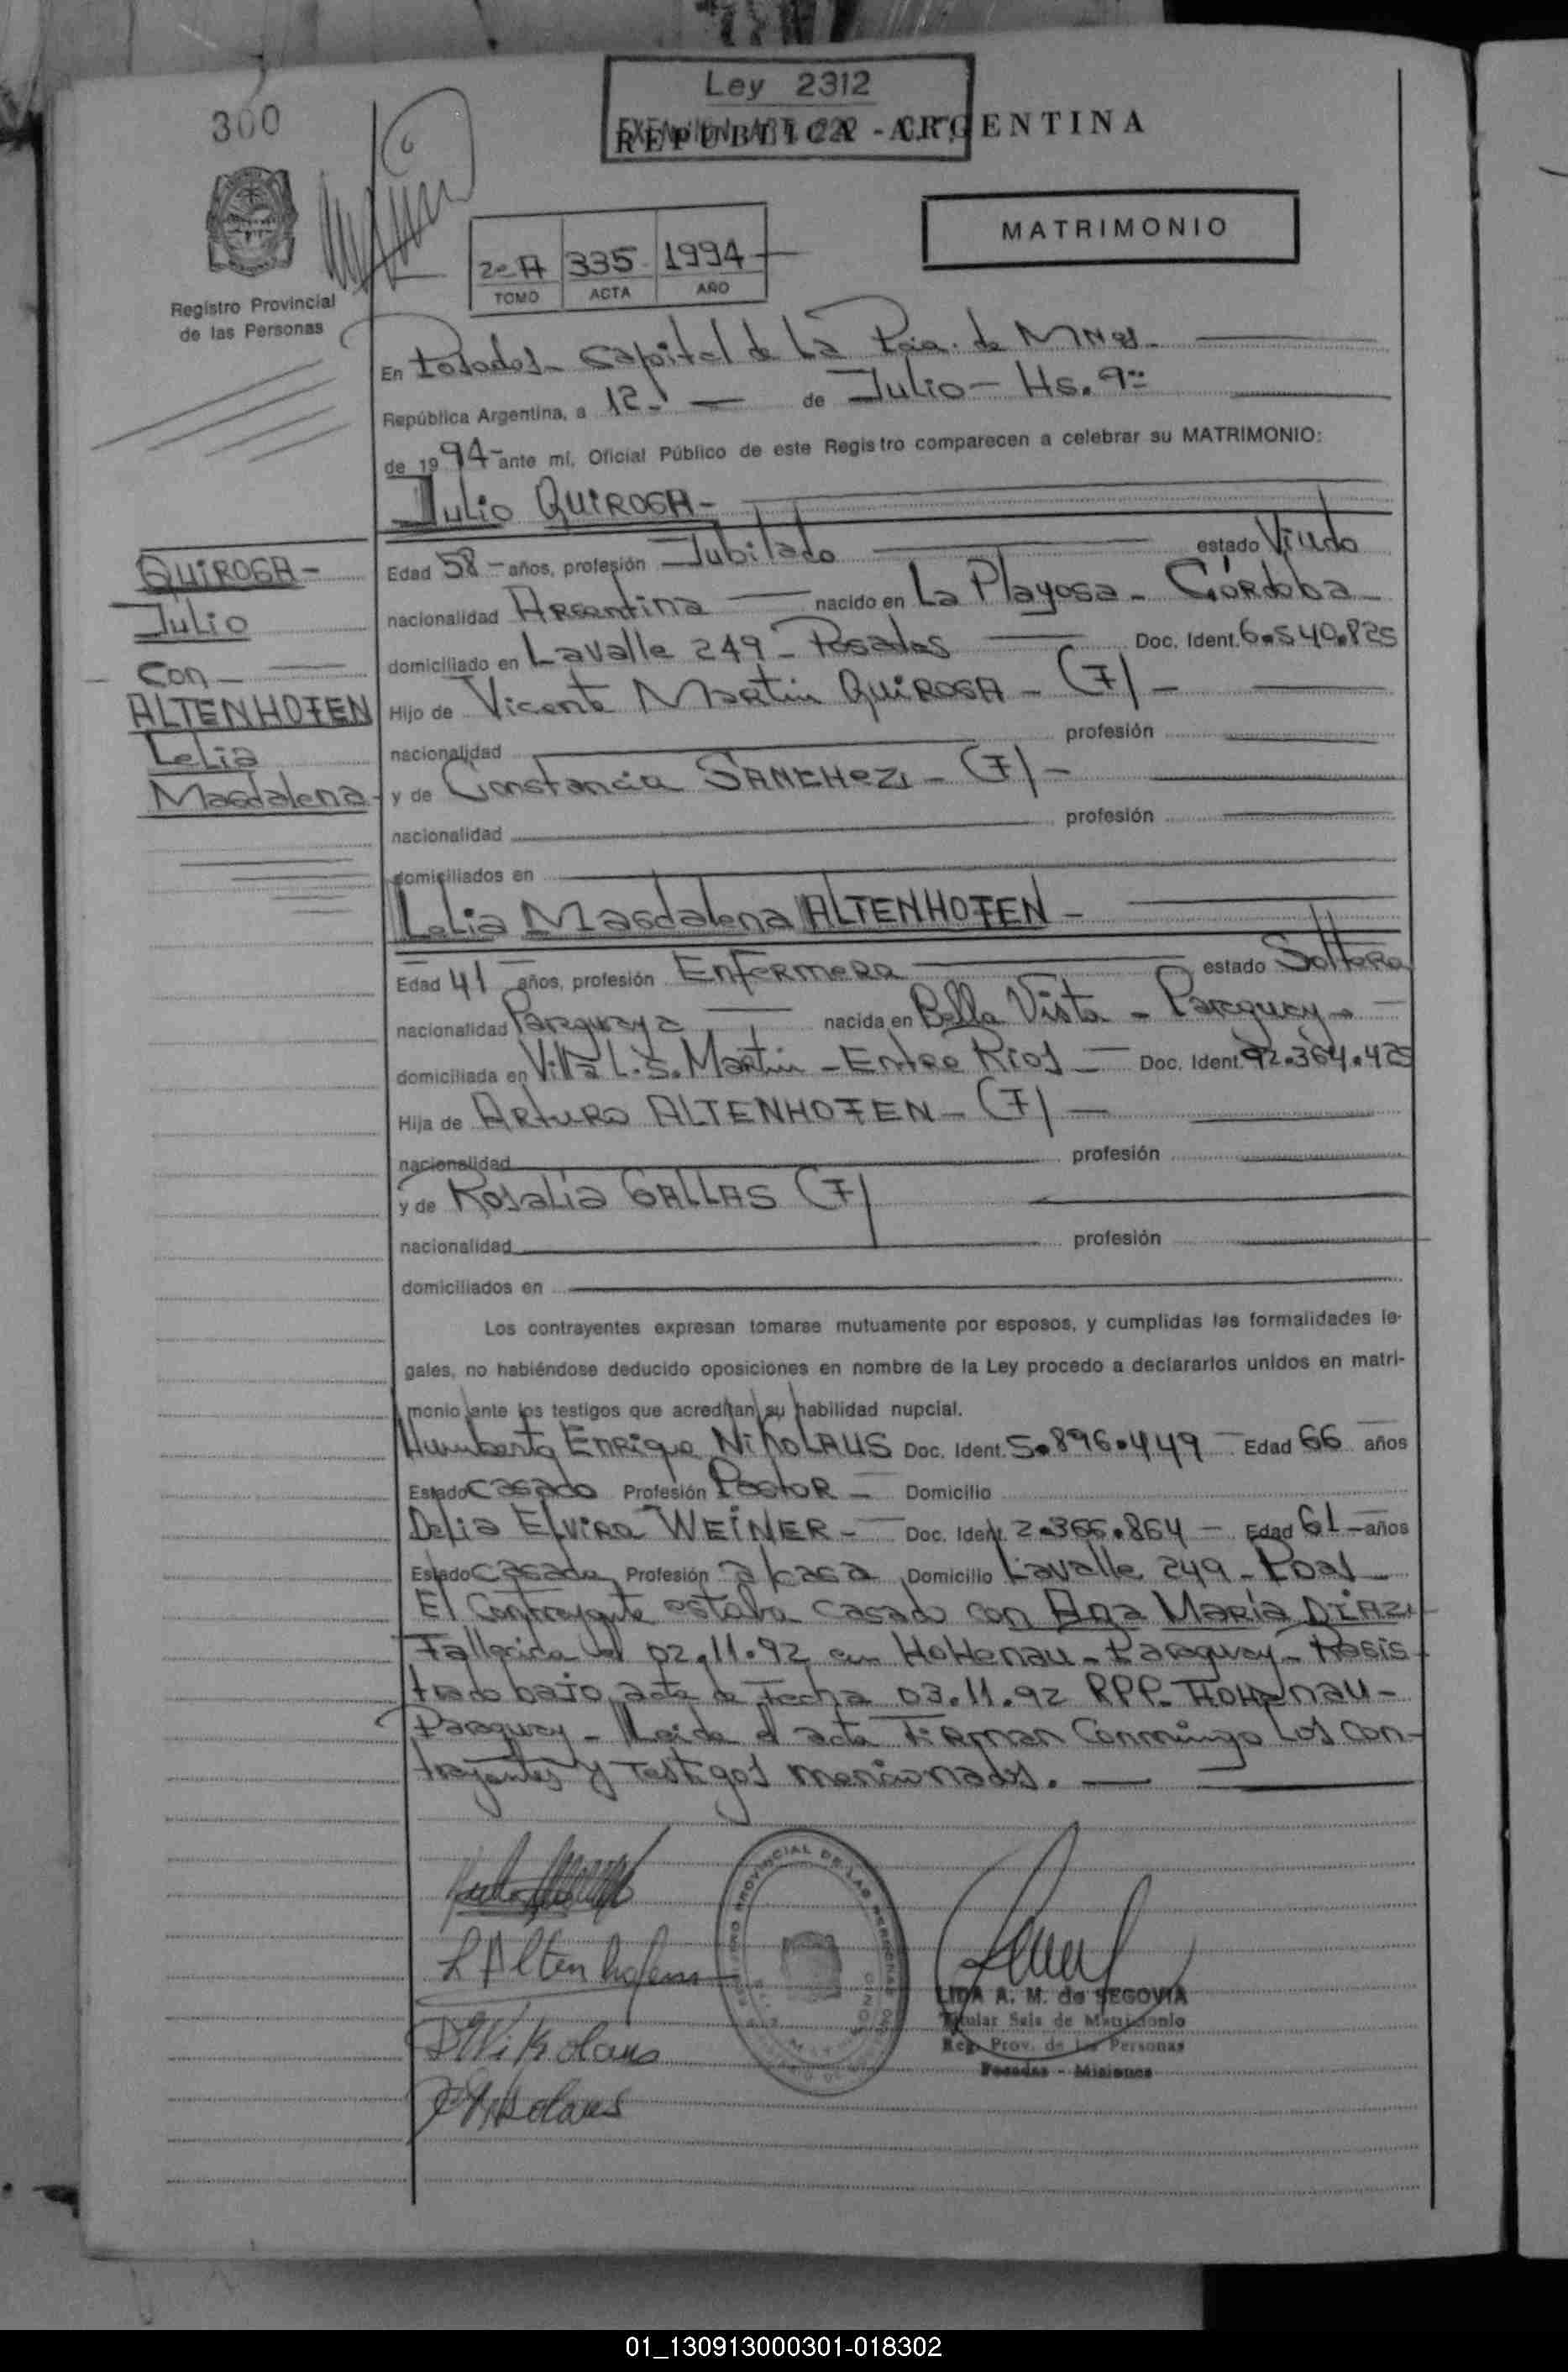 300
Ley 2312
REPUBLICA ARGENTINA
MATRIMONIO
2º A 335 1994
TOMO ACTA AÑO
Registro Provincial
de las Personas
En Posadas - Capital de La Pcia. de Mnes.
República Argentina, a 12 - de Julio - Hs. 9
de 1994 - ante mí, Oficial Público de este Registro comparecen a celebrar su MATRIMONIO:
Julio QUIROGA -
QUIROGA -
Julio
Con -
ALTENHOFEN
Lelia
Magdalena
Edad 58 - años, profesión Jubilado estado Viudo
nacionalidad Argentina nacido en La Playosa - Córdoba -
domiciliado en Lavalle 249 - Posadas Doc. Ident. 6.540.825
Hijo de Vicente Martin QUIROGA - (F) -
nacionalidad profesión
y de Constancia SANCHEZ - (F) -
nacionalidad profesión
domiciliados en
Lelia Magdalena ALTENHOFEN -
Edad 41 años, profesión Enfermera estado Soltera
nacionalidad Paraguaya nacida en Bella Vista - Paraguay -
domiciliada en Villa L. S. Martin - Entre Rios - Doc. Ident. 92.364.425
Hija de Arturo ALTENHOFEN - (F) -
nacionalidad profesión
y de Rosalia GALLAS (F)
nacionalidad profesión
domiciliados en
Los contrayentes expresan tomarse mutuamente por esposos, y cumplidas las formalidades le-
gales, no habiéndose deducido oposiciones en nombre de la Ley procedo a declararlos unidos en matri-
monio ante los testigos que acreditan su habilidad nupcial.
Humberto Enrique NiKOLAUS Doc. Ident. 5.896.449 - Edad 66 años
Estado Casado Profesión Pastor - Domicilio
Delia Elvira WEINER - Doc. Ident. 2.366.864 - Edad 61 - años
Estado Casada Profesión a/casa Domicilio Lavalle 249 - Pdas
El Contrayente estaba casado con Ana María DIAZ
Fallecida el 02.11.92 en Hohenau - Paraguay - Regis
trado bajo acta de Fecha 03.11.92 RPP. Hohenau -
Paraguay - Leida el acta Firman Conmigo Los con-
trayentes y Testigos mencionados.
L Altenhofen
D Nikolaus
Nikolaus
REGISTRO PROVINCIAL DE LAS PERSONAS
LIDA A. M. de SEGOVIA
Titular Sala de Matrimonio
Reg. Prov. de las Personas
Posadas - Misiones
01_130913000301-018302